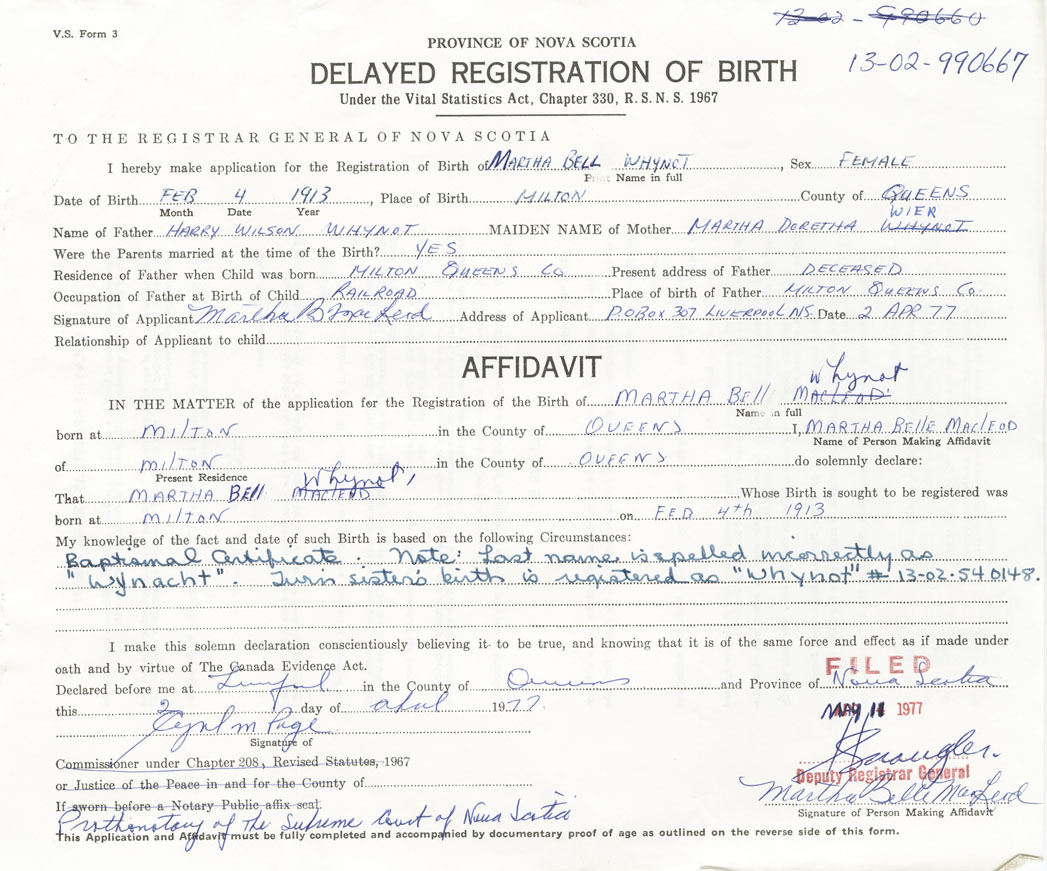 V.S. Form 3
13-02-990660
PROVINCE OF NOVA SCOTIA
13-02-990667
DELAYED REGISTRATION OF BIRTH
Under the Vital Statistics Act, Chapter 330, R. S. N. S. 1967
TO THE REGISTRAR GENERAL OF NOVA SCOTIA
I hereby make application for the Registration of Birth of MARTHA BELL WHYNOT, Sex FEMALE
Print Name in full
Date of Birth FEB 4 1913, Place of Birth MILTON County of QUEENS
Month Date Year
WIER
Name of Father HARRY WILSON WHYNOT MAIDEN NAME of Mother MARTHA DORETHA WHYNOT
Were the Parents married at the time of the Birth? YES
Residence of Father when Child was born MILTON QUEENS CO Present address of Father DECEASED
Occupation of Father at Birth of Child RAILROAD Place of birth of Father MILTON QUEENS CO.
Signature of Applicant Martha B MacLeod Address of Applicant P.O BOX 307 LIVERPOOL NS. Date 2 APR 77
Relationship of Applicant to child
AFFIDAVIT
Whynot
IN THE MATTER of the application for the Registration of Birth of MARTHA BELL MACLEOD
Name in full
born at MILTON in the County of QUEENS I, MARTHA BELLE MACLEOD
Name of Person Making Affidavit
of MILTON in the County of QUEENS do solemnly declare:
Present Residence
Whynot,
That MARTHA BELL MACLEOD Whose Birth is sought to be registered was
born at MILTON on FEB 4th 1913
My knowledge of the fact and date of such Birth is based on the following Circumstances:
Baptismal Certificate. Note: Last name is spelled incorrectly as
"Wynacht". Turn sister's birth is registered as "Whynot" # 13-02-540148.
I make this solemn declaration conscientiously believing it to be true, and knowing that it is of the same force and effect as if made under
oath and by virtue of The Canada Evidence Act.
FILED
Declared before me at in the County of Queens and Province of Nova Scotia
this 2 day of april 1977.
MAY 11 1977
Signature of
Commissioner under Chapter 208, Revised Statutes, 1967
Deputy Registrar General
or Justice of the Peace in and for the County of
Martha Belle MacLeod
If sworn before a Notary Public affix seal.
Signature of Person Making Affidavit
Prothonotary of The Supreme Court of Nova Scotia
This Application and Affidavit must be fully completed and accompanied by documentary proof of age as outlined on the reverse side of this form.